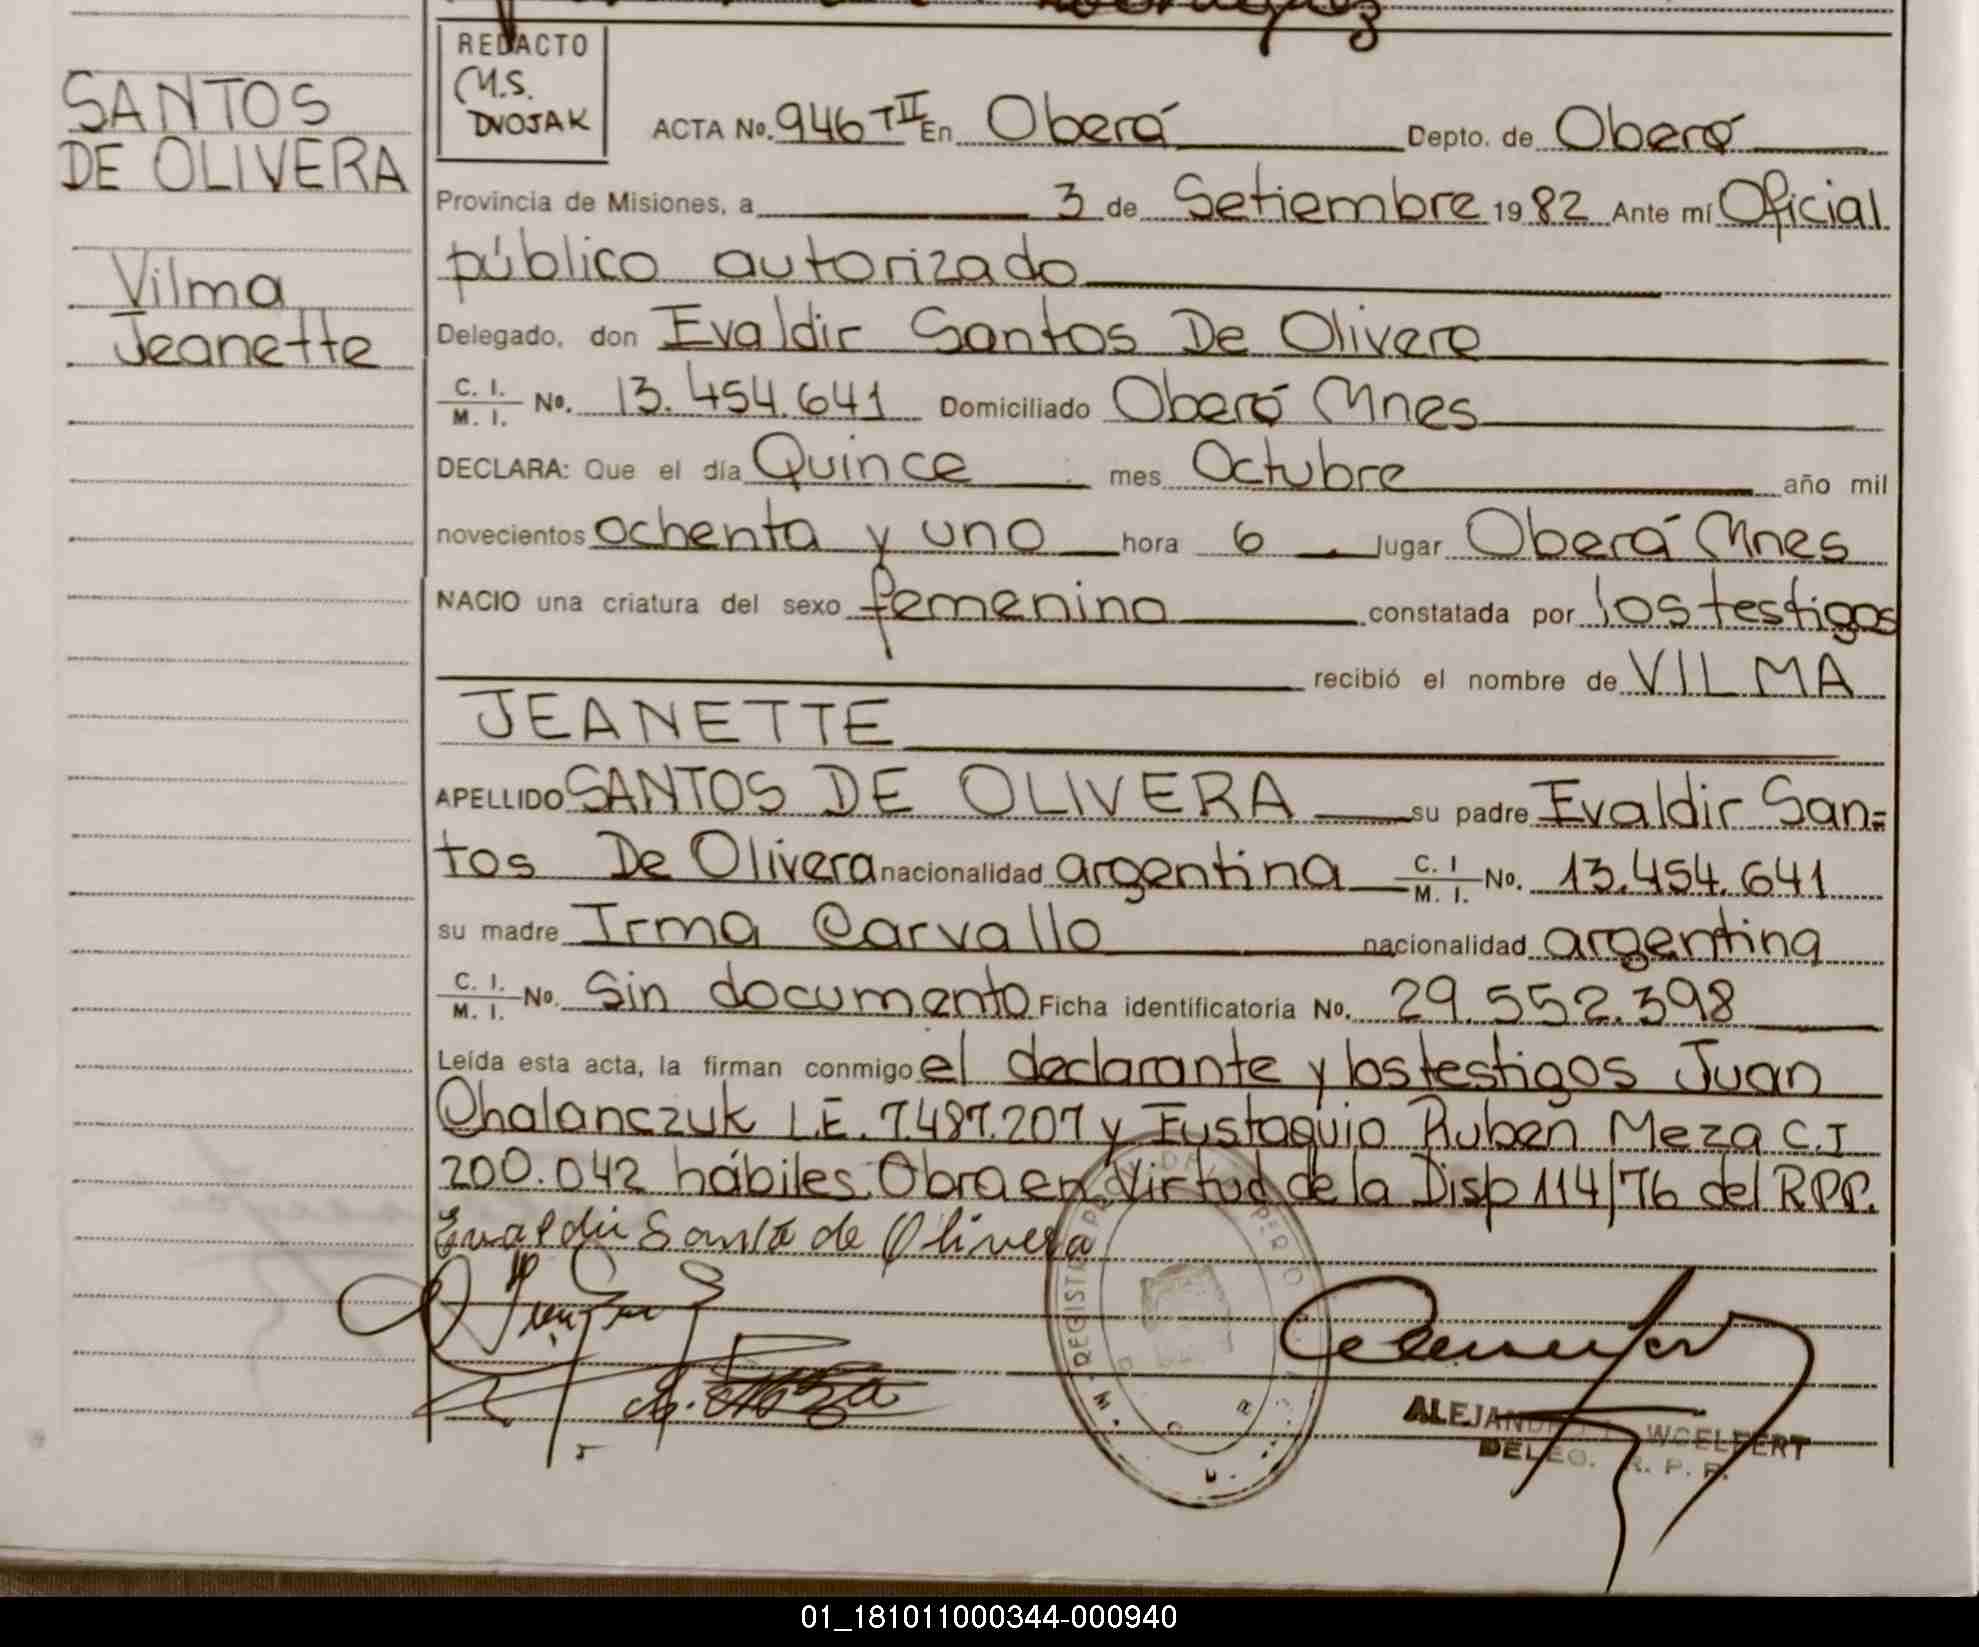 REDACTO
M.S.
DVOJAK
SANTOS
DE OLIVERA
Vilma
Jeanette
ACTA No. 946 T II En Oberá Depto. de Oberá
Provincia de Misiones, a 3 de Setiembre 1982 Ante mí Oficial
público autorizado
Delegado, don Evaldir Santos De Olivera
C. I. / M. I. No. 13.454.641 Domiciliado Oberá Mnes
DECLARA: Que el día Quince mes Octubre año mil
novecientos ochenta y uno hora 6 lugar Oberá Mnes
NACIO una criatura del sexo femenino constatada por los testigos
recibió el nombre de VILMA
JEANETTE
APELLIDO SANTOS DE OLIVERA su padre Evaldir San=
tos De Olivera nacionalidad argentina C. I / M. I. No. 13.454.641
su madre Irma Carvallo nacionalidad argentina
C. I. / M. I. No. Sin documento Ficha identificatoria No. 29.552.398
Leída esta acta, la firman conmigo el declarante y los testigos Juan
Chalanczuk L.E. 7.487.207 y Eustaquio Ruben Meza C.I
200.042 hábiles. Obra en Virtud de la Disp 114/76 del R.P.P.
Evaldir Santo de Olivera
ALEJANDRO WOELFERT
DELEG. R. P. P.
01_181011000344-000940